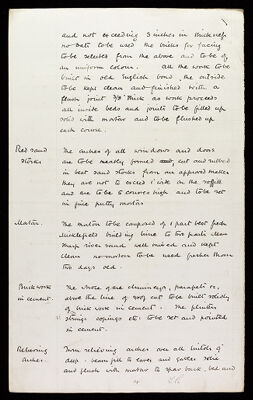 and not exceeding 3 inches in thickness
no bats to be used the bricks for facing
to be selected from the above and to be of
an uniform colour. All the work to be
built in old English bond, the outside
to be kept clean and finished with a
flush joint 3/8 thick as work proceeds
all inside beds and joints to be filled up
solid with mortar and to be flushed up
each course.
Red sand The arches of all windows and doors
stocks. are to be neatly formed cut and rubbed
in best sand stocks from an approved maker
they are not to exceed on the soffit
and are to be 6 courses high and to be set
in fine putty mortar
Mortar. The mortar to be composed of 1 part best fresh
building lime to two parts clean
sharp river sand well mixed and kept
clean no mortar to be used further than
two days old.
Brickwork The whole of the chimneys, parapets &c.
in cement. above the line of roof cut to be built solidly
of brick work in cement. The plinths
strings copings etc. to be set and pointed
in cement.
Relieving Turn relieving arches over all lintels 9"
arches. deep. Beamfill to eaves and gables solid
and flush with mortar to spar back. bed and